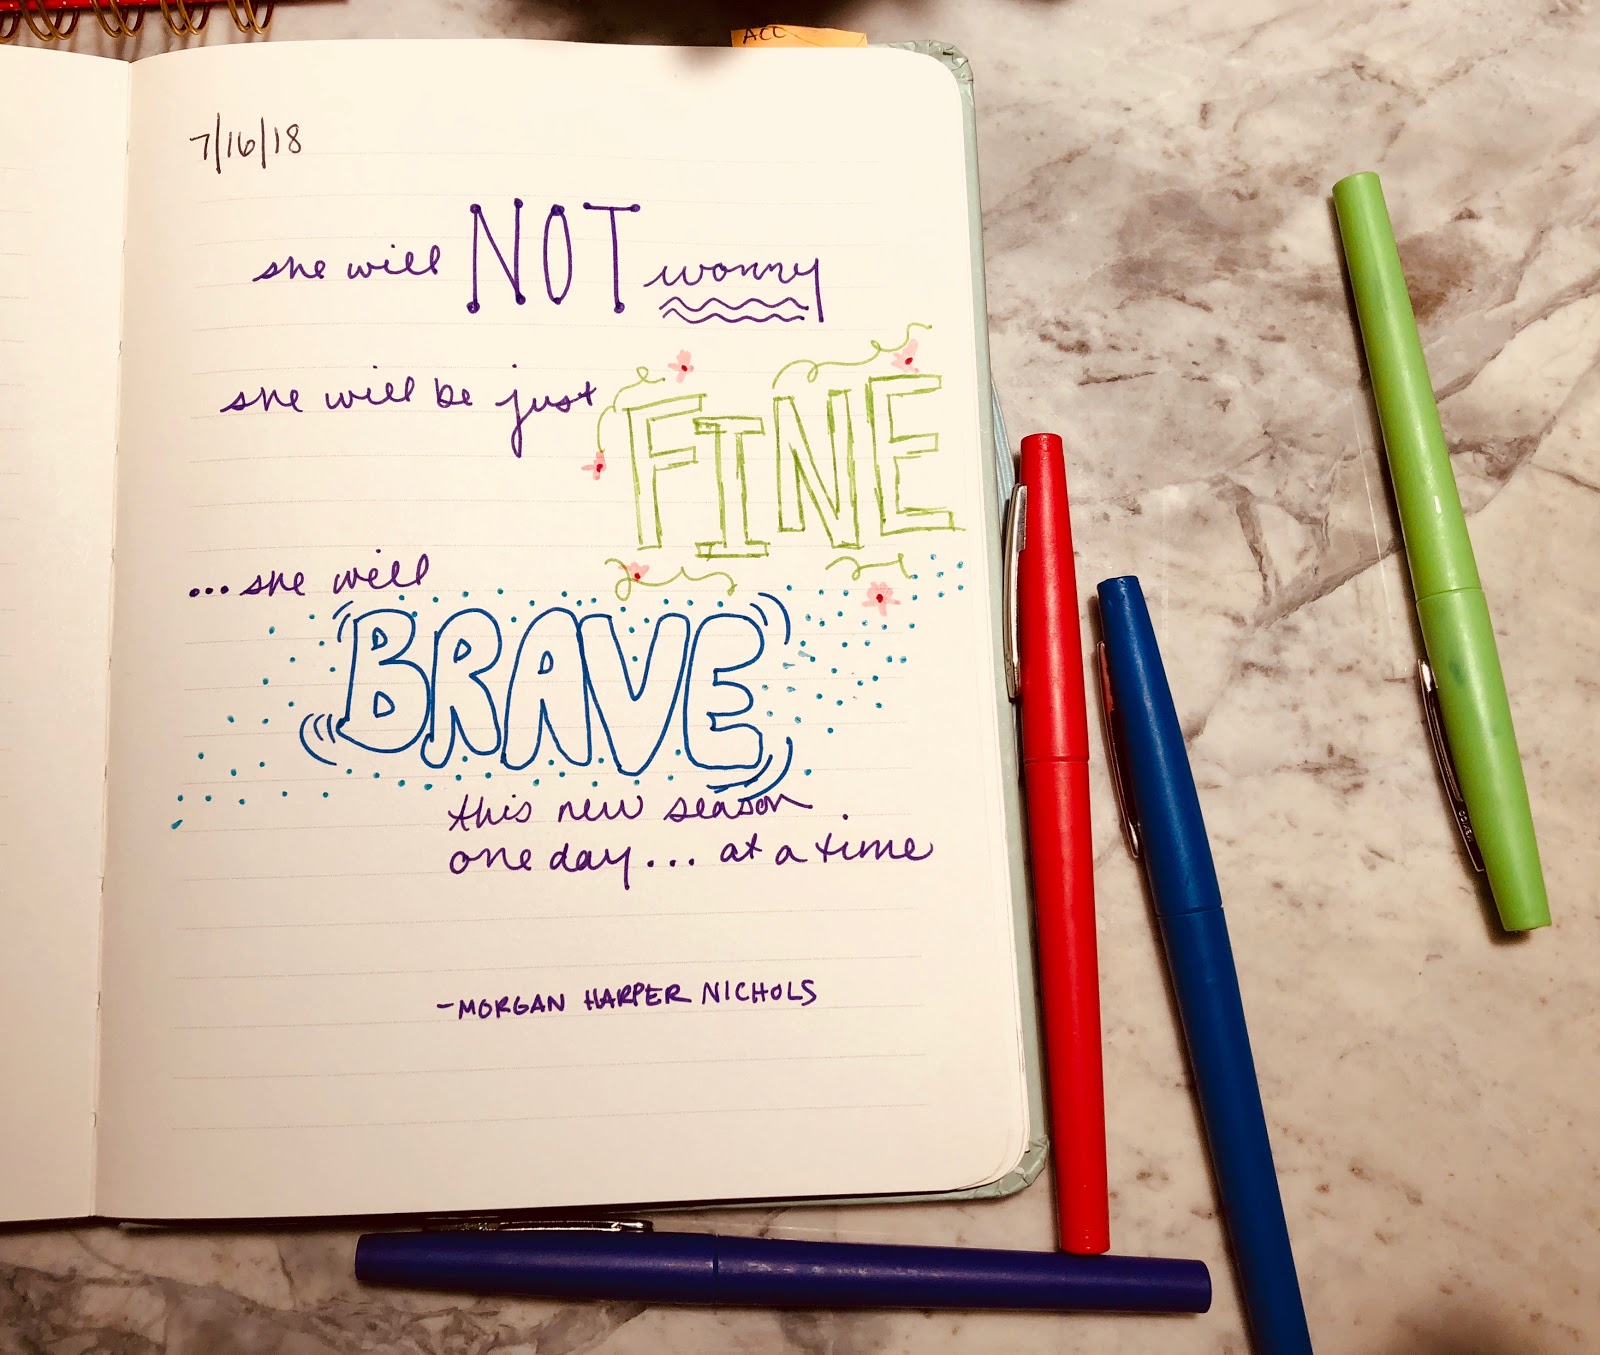 ACC
7/16/18
she will NOT worry
she will be just FINE
...she will
BRAVE
this new season
one day... at a time
-MORGAN HARPER NICHOLS